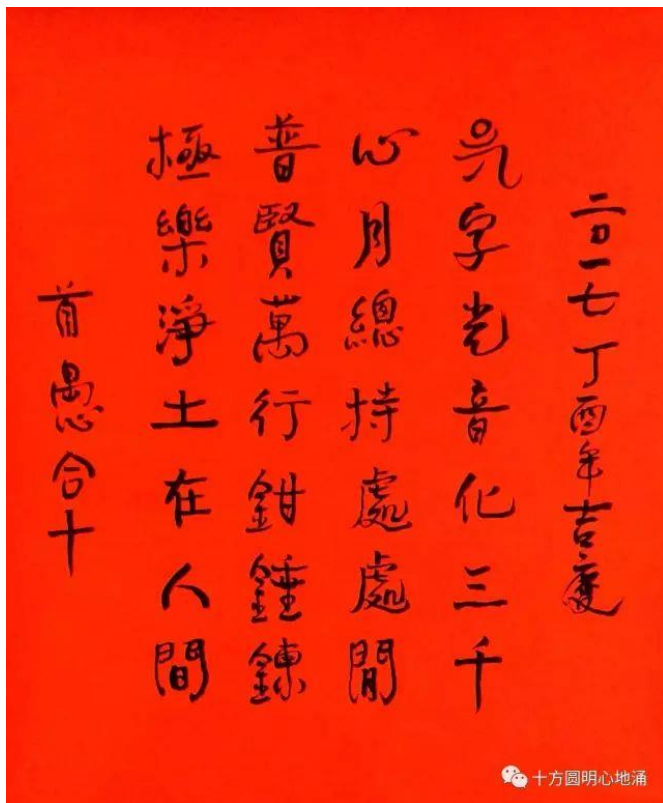 二〇一七丁酉年吉慶
字光音化三千
心月總持處處閒
普賢萬行鉗錘鍊
極樂淨土在人間
首愚合十
十方圆明心地涌